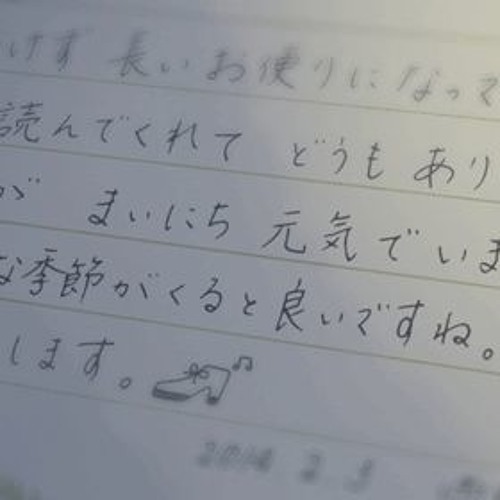 けず 長いお便りになって
読んでくれて どうも あり
が まいにち 元気でいま
な季節がくると良いですね。
します。
2014 2.3